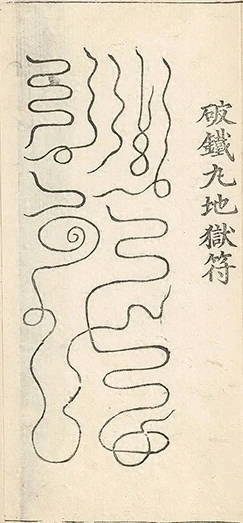 破鐵九地獄符